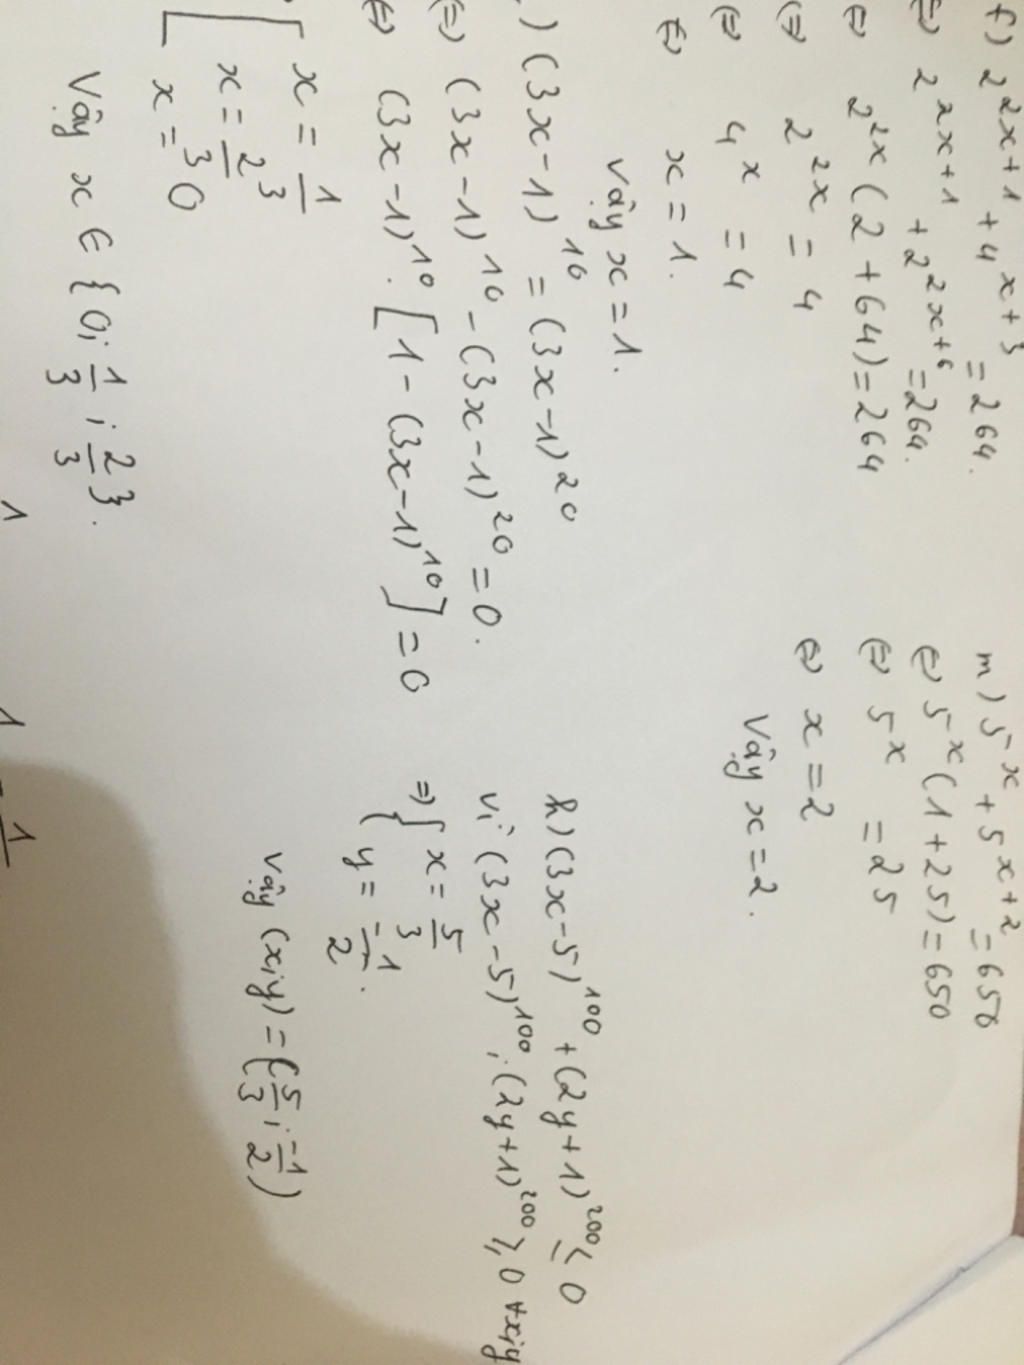 f) 2^{2x+1} + 4^{x+3} = 264.
(=) 2^{2x+1} + 2^{2x+6} = 264.
(=) 2^{2x} (2 + 64) = 264
(=) 2^{2x} = 4
(=) 4^x = 4
(=) x = 1.
Vậy x = 1.
) (3x - 1)^{10} = (3x - 1)^{20}
(=) (3x - 1)^{10} - (3x - 1)^{20} = 0.
(=) (3x - 1)^{10} . [1 - (3x - 1)^{10}] = 0
x = 1/3
x = 2/3
x = 0
Vậy x ∈ {0; 1/3; 2/3}.
m) 5^x + 5^{x+2} = 650
(=) 5^x (1 + 25) = 650
(=) 5^x = 25
(=) x = 2
Vậy x = 2.
h) (3x - 5)^{100} + (2y + 1)^{200} ≤ 0
Vì (3x - 5)^{100}; (2y + 1)^{200} ≥ 0 ∀x;y
=> { x = 5/3
y = -1/2.
Vậy (x;y) = (5/3; -1/2)
1
1
1